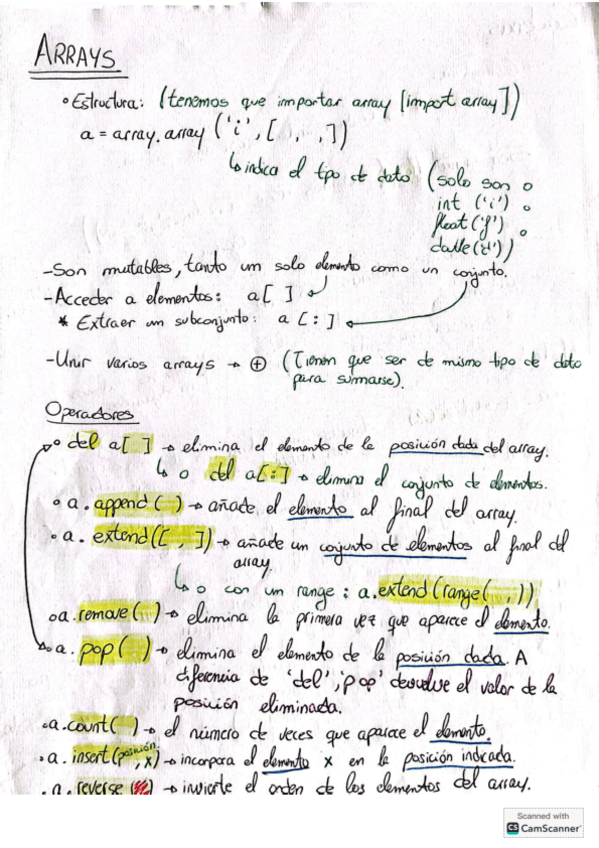 ARRAYS
° Estructura: (tenemos que importar array [import array])
a = array.array ('i', [ , , ])
↳ indica el tipo de dato (solo son
int ('i')
float ('f')
doble ('d'))
- Son mutables, tanto un solo elemento como un conjunto.
- Acceder a elementos: a[ ]
* Extraer un subconjunto: a[:]
- Unir varios arrays → ⊕ (Tienen que ser de mismo tipo de dato
para sumarse).
Operadores
° del a[ ] → elimina el elemento de la posición dada del array.
↳ o del a[:] → elimina el conjunto de elementos.
° a.append( ) → añade el elemento al final del array.
° a.extend([ , ]) → añade un conjunto de elementos al final del
array.
↳ o con un range: a.extend(range( , ))
° a.remove( ) → elimina la primera vez que aparece el elemento.
° a.pop( ) → elimina el elemento de la posición dada. A
diferencia de 'del', 'pop' devuelve el valor de la
posición eliminada.
° a.count( ) → el número de veces que aparece el elemento.
° a.insert(posición, x) → incorpora el elemento x en la posición indicada.
° a.reverse( ) → invierte el orden de los elementos del array.
Scanned with
CS CamScanner